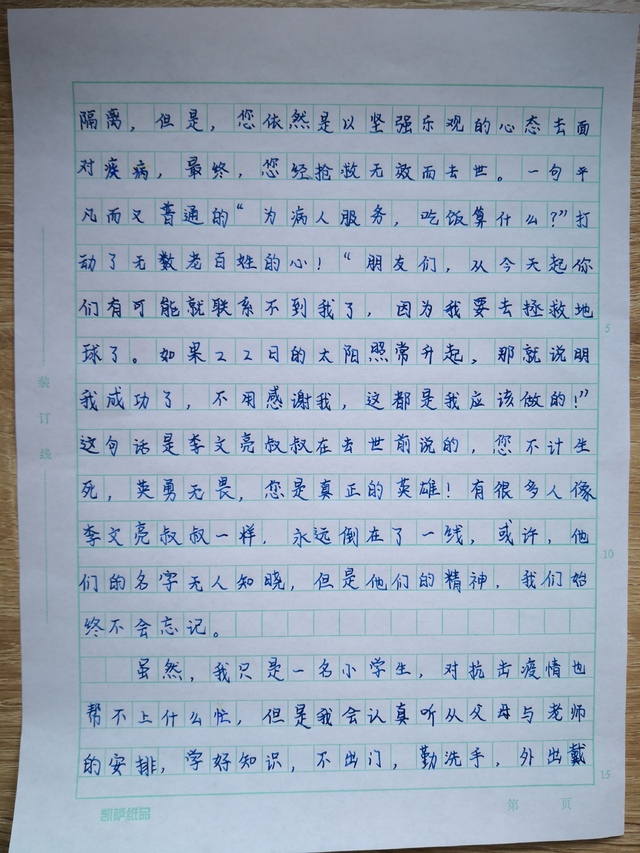 隔离，但是，您依然是以坚强乐观的心态去面
对疾病，最终，您经抢救无效而去世。一句平
凡而又普通的“为病人服务，吃饭算什么？”打
动了无数老百姓的心！“朋友们，从今天起你
们有可能就联系不到我了，因为我要去拯救地
球了。如果22日的太阳照常升起，那就说明
我成功了，不用感谢我，这都是我应该做的！”
这句话是李文亮叔叔在去世前说的，您不计生
死，英勇无畏，您是真正的英雄！有很多人像
李文亮叔叔一样，永远倒在了一线，或许，他
们的名字无人知晓，但是他们的精神，我们始
终不会忘记。
虽然，我只是一名小学生，对抗击疫情也
帮不上什么忙，但是我会认真听从父母与老师
的安排，学好知识，不出门，勤洗手，外出戴
装订线
5
10
15
凯萨纸品
第 页